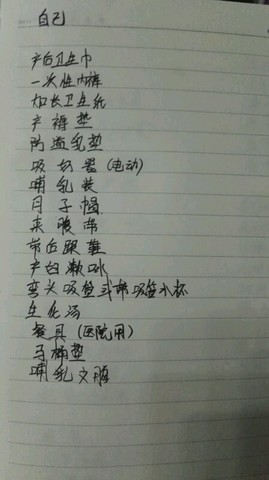 自己
产后卫生巾
一次性内裤
加长卫生纸
产褥垫
防溢乳垫
吸奶器(电动)
哺乳装
月子帽
束腹带
带后跟鞋
产妇漱口水
弯头吸管或带吸管水杯
生化汤
餐具(医院用)
马桶垫
哺乳文胸